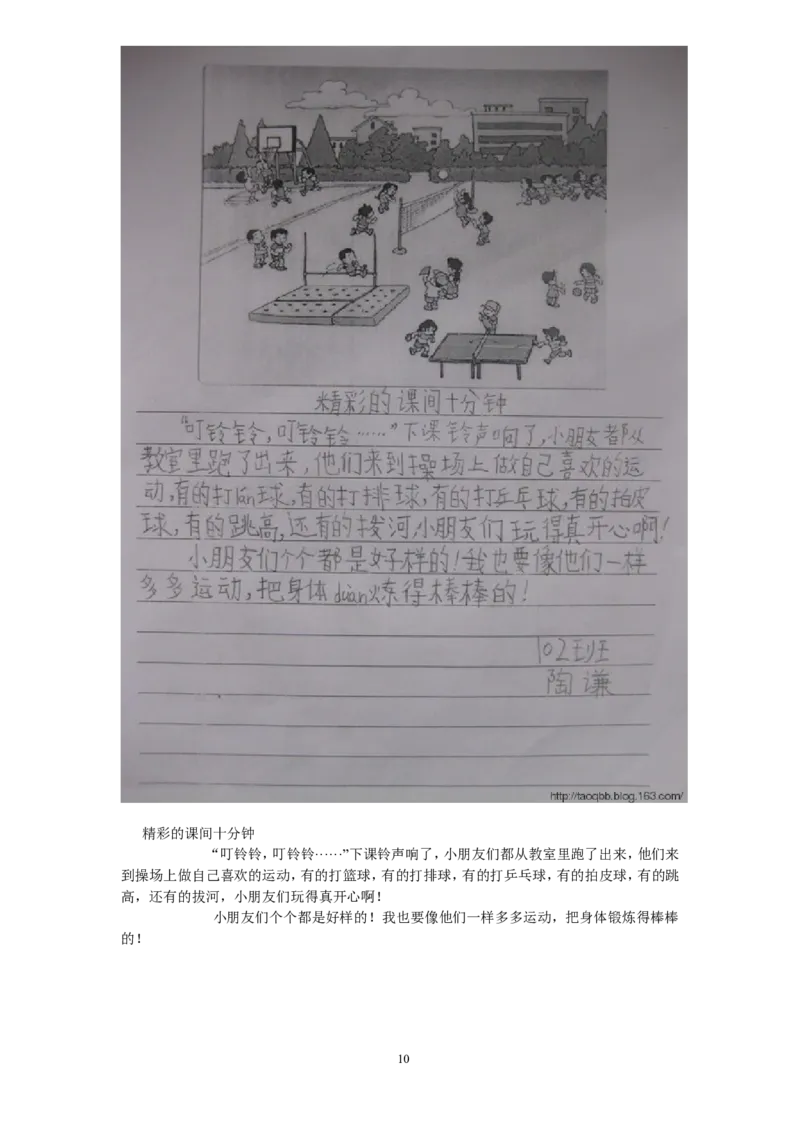 精彩的课间十分钟
“叮铃铃,叮铃铃……”下课铃声响了,小朋友都从
教室里跑了出来,他们来到操场上做自己喜欢的运
动,有的打lán球,有的打排球,有的打乒乓球,有的拍皮
球,有的跳高,还有的拨河,小朋友们玩得真开心啊!
小朋友们个个都是好样的!我也要像他们一样
多多运动,把身体duàn炼得棒棒的!
102班
陶谦
http://taoqbb.blog.163.com/
精彩的课间十分钟
“叮铃铃，叮铃铃……”下课铃声响了，小朋友们都从教室里跑了出来，他们来
到操场上做自己喜欢的运动，有的打篮球，有的打排球，有的打乒乓球，有的拍皮球，有的跳
高，还有的拔河，小朋友们玩得真开心啊！
小朋友们个个都是好样的！我也要像他们一样多多运动，把身体锻炼得棒棒
的！
10